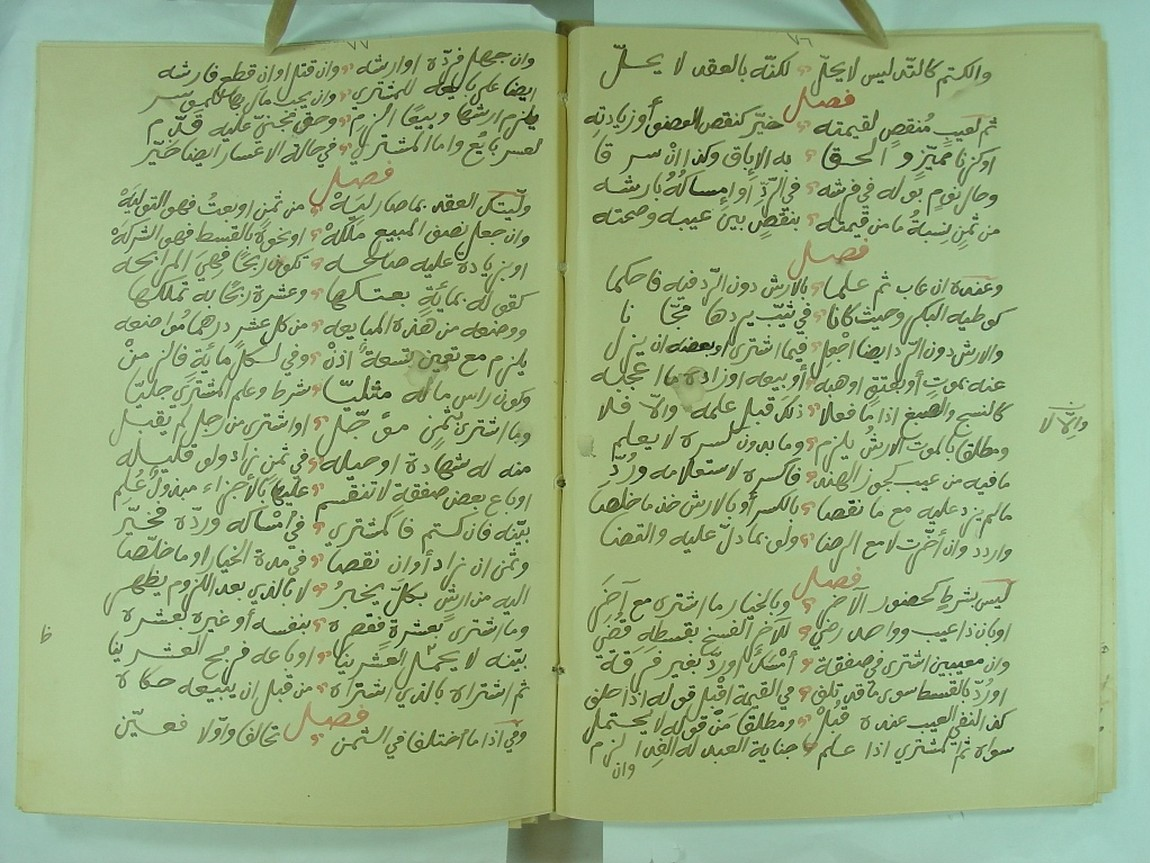 ٧٦
والكتم كالتدليس لا يحلّ ؟ لكنّه بالعقد لا يحلّ
فصل
ثم لعيب مُنقصٍ لقيمته ؟ خيّر كنقص العضو أو زيادته
او كزنا مميّزٍ و الحقا ؟ به الإباق وكذا إن سرقا
وحال نوم بوله في فرشه ؟ في الرّدِّ او إمساكُهُ بارشه
من ثمنٍ نسبةُ ما من قيمته ؟ بنقصٍ بين عيبه وصحته
فصل
وعنده ان عاب ثم علما ؟ بالارش دون الرّد فيه فاحكما
كوطيه البكر وحيث كانا ؟ في ثيّب يردها مجّانا
والارش دون الردّ ايضا اجعل ؟ فيما اشترى او بعضه ان يزل
عنه بموتٍ أو بعتقٍ او هبه ؟ أو بيعه او زاده ما اعجبه
كالنسج والصبغ اذا ما فعلا ؟ ذلك قبل علمه والّا فلا
وإلّا لا
ومطلقا بالموت الارشُ يلزم ؟ وما بدون كسره لا يعلم
ما فيه من عيب كجوز الهند ؟ فاكسره لاستعلامه ورُدِّ
مالم يزد عليه مع ما نقصا ؟ بالكسر أو بالارش خذ ما خلصا
واردد وان أخّرت لا مع الرضا ؟ ولو بما دلّ عليه والقضا
فصل
ليس بشرطٍ كحضور الآخر ؟ وبالخيار ما اشتره مع آخر
او بان ذا عيب وواحد رضي ؟ للآخر الفسخ بقسطه قضي
وان معيبين اشترى في صفقة ؟ أمسك او ردّ بغير فرقة
او رُدّ بالقسط سوى ما قد تلف ؟ في القيمة اقبل قوله اذا حلف
كذا لنفي العيب عنده قُبل ؟ ومطلقا من قوله لا يحتمل
سواه ثم المشتري اذا علم ؟ جناية العبد له الفدا لزم
وان
٧٧
وان جهل فردّه او ارشه ؟ وان قتل او ان قطع فارشه
ايضا على بايعه للمشتري ؟ وان يجب مال بها للموسر
يلزم ارشها وبيعًا الزم ؟ وحق مجنيّ عليه قدّم
لعسر بايعٍ واما المشتري ؟ في حالة الاعسار ايضا خيّر
فصل
من ثمنٍ او بعتُ فهو التوليَهْ
وان جعل نصف المبيع ملكَهْ ؟ او نحوه بالقسط فهو الشركَهْ
او بزيادة عليه صالحه ؟ تكون ربحًا فهي المرابحه
كقوله بمائةٍ بعتكها ؟ وعشرة ربحًا به تملكها
ووضعه من هذه المبايعه ؟ من كل عشر درهما مواضعه
يلزم مع تعيين تسعةٌ اذنْ ؟ وفي لكلّ مائةٍ فالزمنْ
وكون راس ماله مثليّا ؟ شرط وعلم المشتري جليّا
وما اشترى بثمنٍ مؤجّل ؟ او اشترى من رجل لم يقبل
منه له شهادة او حيله ؟ في ثمنٍ زاد ولو قليله
او باع بعض صفقة لا تنقسم ؟ عليها بالاجزاء مبذولٌ عُلِم
بيّنه فان كتم فالمشتري ؟ في امساكه وردّه فخيّر
وثمن ان زاد أو ان نقصا ؟ في مدة الخيار او ما خلّصا
اليه من ارشٍ بكلّ يخبرُ ؟ لا بالذي بعد اللزوم يظهر
وما اشترى بعشرة فقصره ؟ بنفسه أو غيره بعشره
بيّنه لا يحمل العشرينا ؟ او باعه فربح العشرينا
ظ
ثم اشتراه بالذي اشتراه ؟ من قبل ان يبيعه حكاه
فصل
وفي اذا ما اختلفا في الثمن ؟ تحالفا واوّلا فعيّن